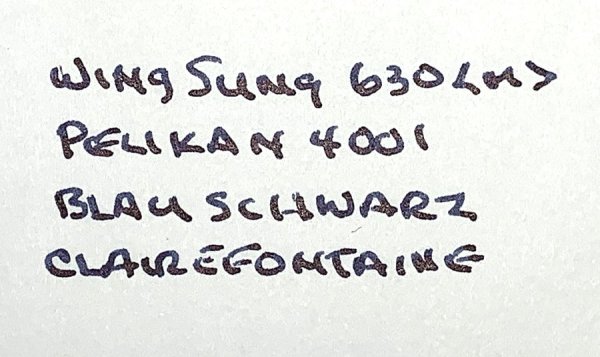 Wing Sung 630 <M>
PELIKAN 4001
BLAU SCHWARZ
CLAIREFONTAINE